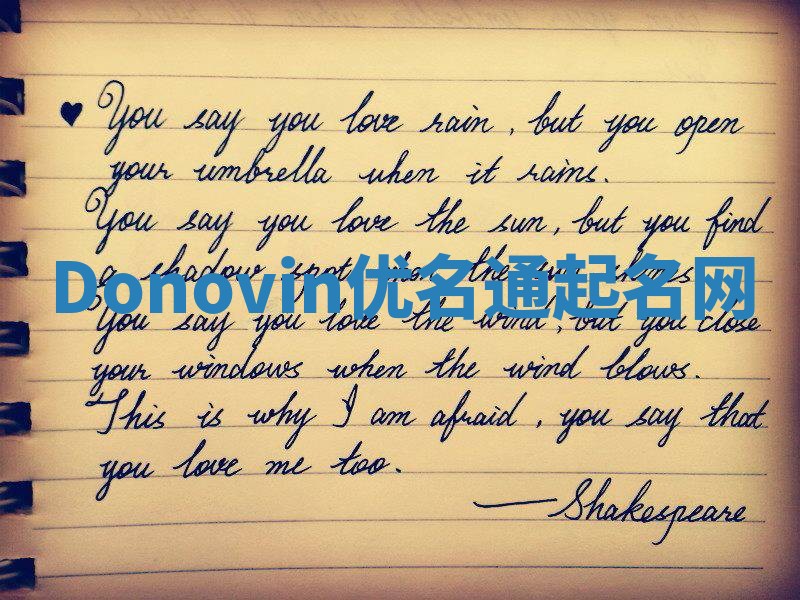 ♥ You say you love rain, but you open
your umbrella when it rains.
You say you love the sun, but you find
a shadow spot when the sun shines
Donovin优名通起名网
You say you love the wind, but you close
your windows when the wind blows.
This is why I am afraid, you say that
you love me too.
—Shakespeare